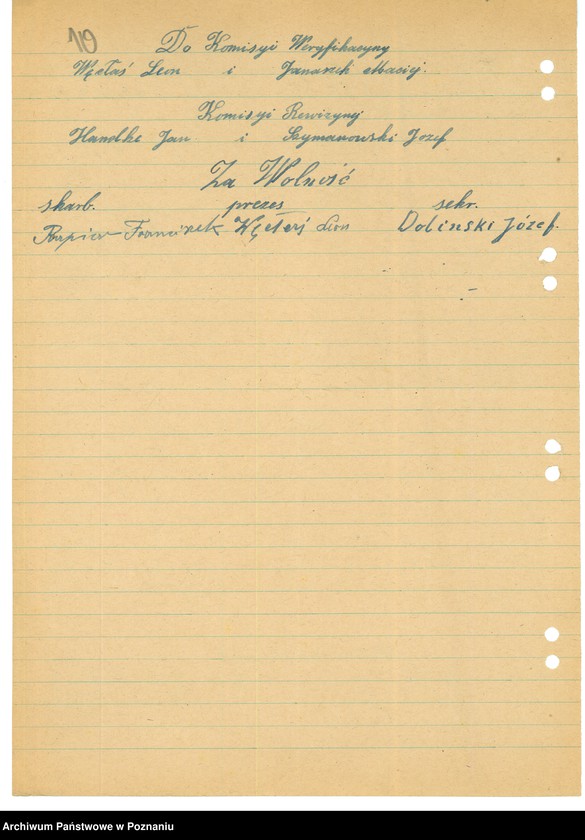 10
Do Komisyi Weryfikacyny
Węxtaś Leon i Janaszek Maciej.
Komisyi Rewizyny
Handke Jan i Szymanowski Jozef
Za Wolność
skarb. prezes sekr.
Franciszek Leon Dolinski Józef.
Archiwum Państwowe w Poznaniu